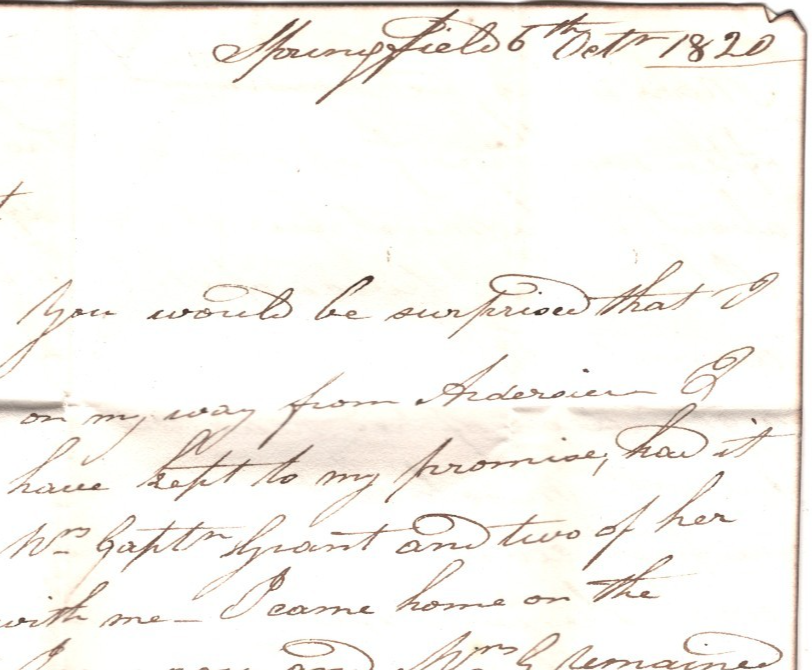 Springfield 6th Octr 1820
You would be surprised that I
on my way from Ardersier I
have kept to my promise, had it
Mrs Captn Grant and two of her
with me - I came home on the
and Mrs G remained